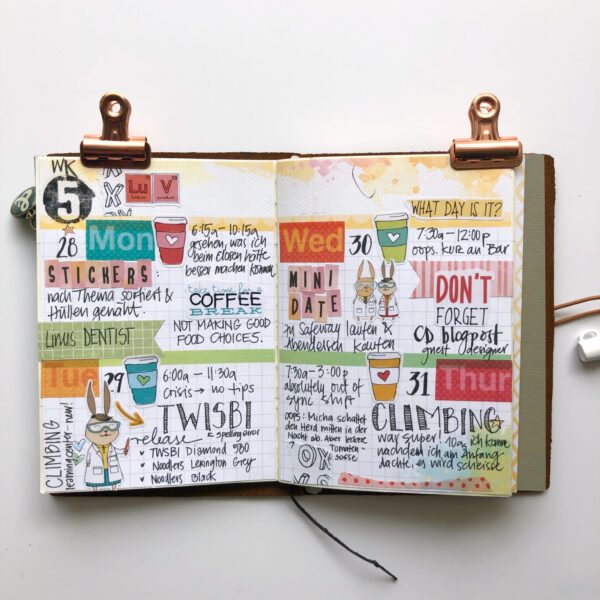 WK
5
Lu V
28 Mon
6:15a - 10:15a
gesehen, was ich
beim
besser machen können
STICKERS:
nach Thema sortiert &
Hüllen genäht.
take time for a
COFFEE
BREAK
NOT MAKING GOOD
FOOD CHOICES.
Linus DENTIST
Tue 29
6:00a - 11:30a
crisis → no tips
TWISBI
release
spelling error
TWSBI Diamond 580
Noodlers Lexington Grey
Noodlers Black
CLIMBING
learning center - new!
WHAT DAY IS IT?
Wed 30
7:30a - 12:00p
oops. kurz an Bar
MINI
DATE
zu Safeway laufen &
Abendessen kaufen
DON'T
FORGET
CD blogpost
guest designer
31 Thur
7:30a - 3:00p
absolutely out of
sync shift
oops: Micha schaltet
den Herd mitten in der
Nacht ab. Aber leckere
Tomaten-
sosse
CLIMBING
war super! 10a, ich konnte
nachdem ich am Anfang
dachte, es wird scheisse